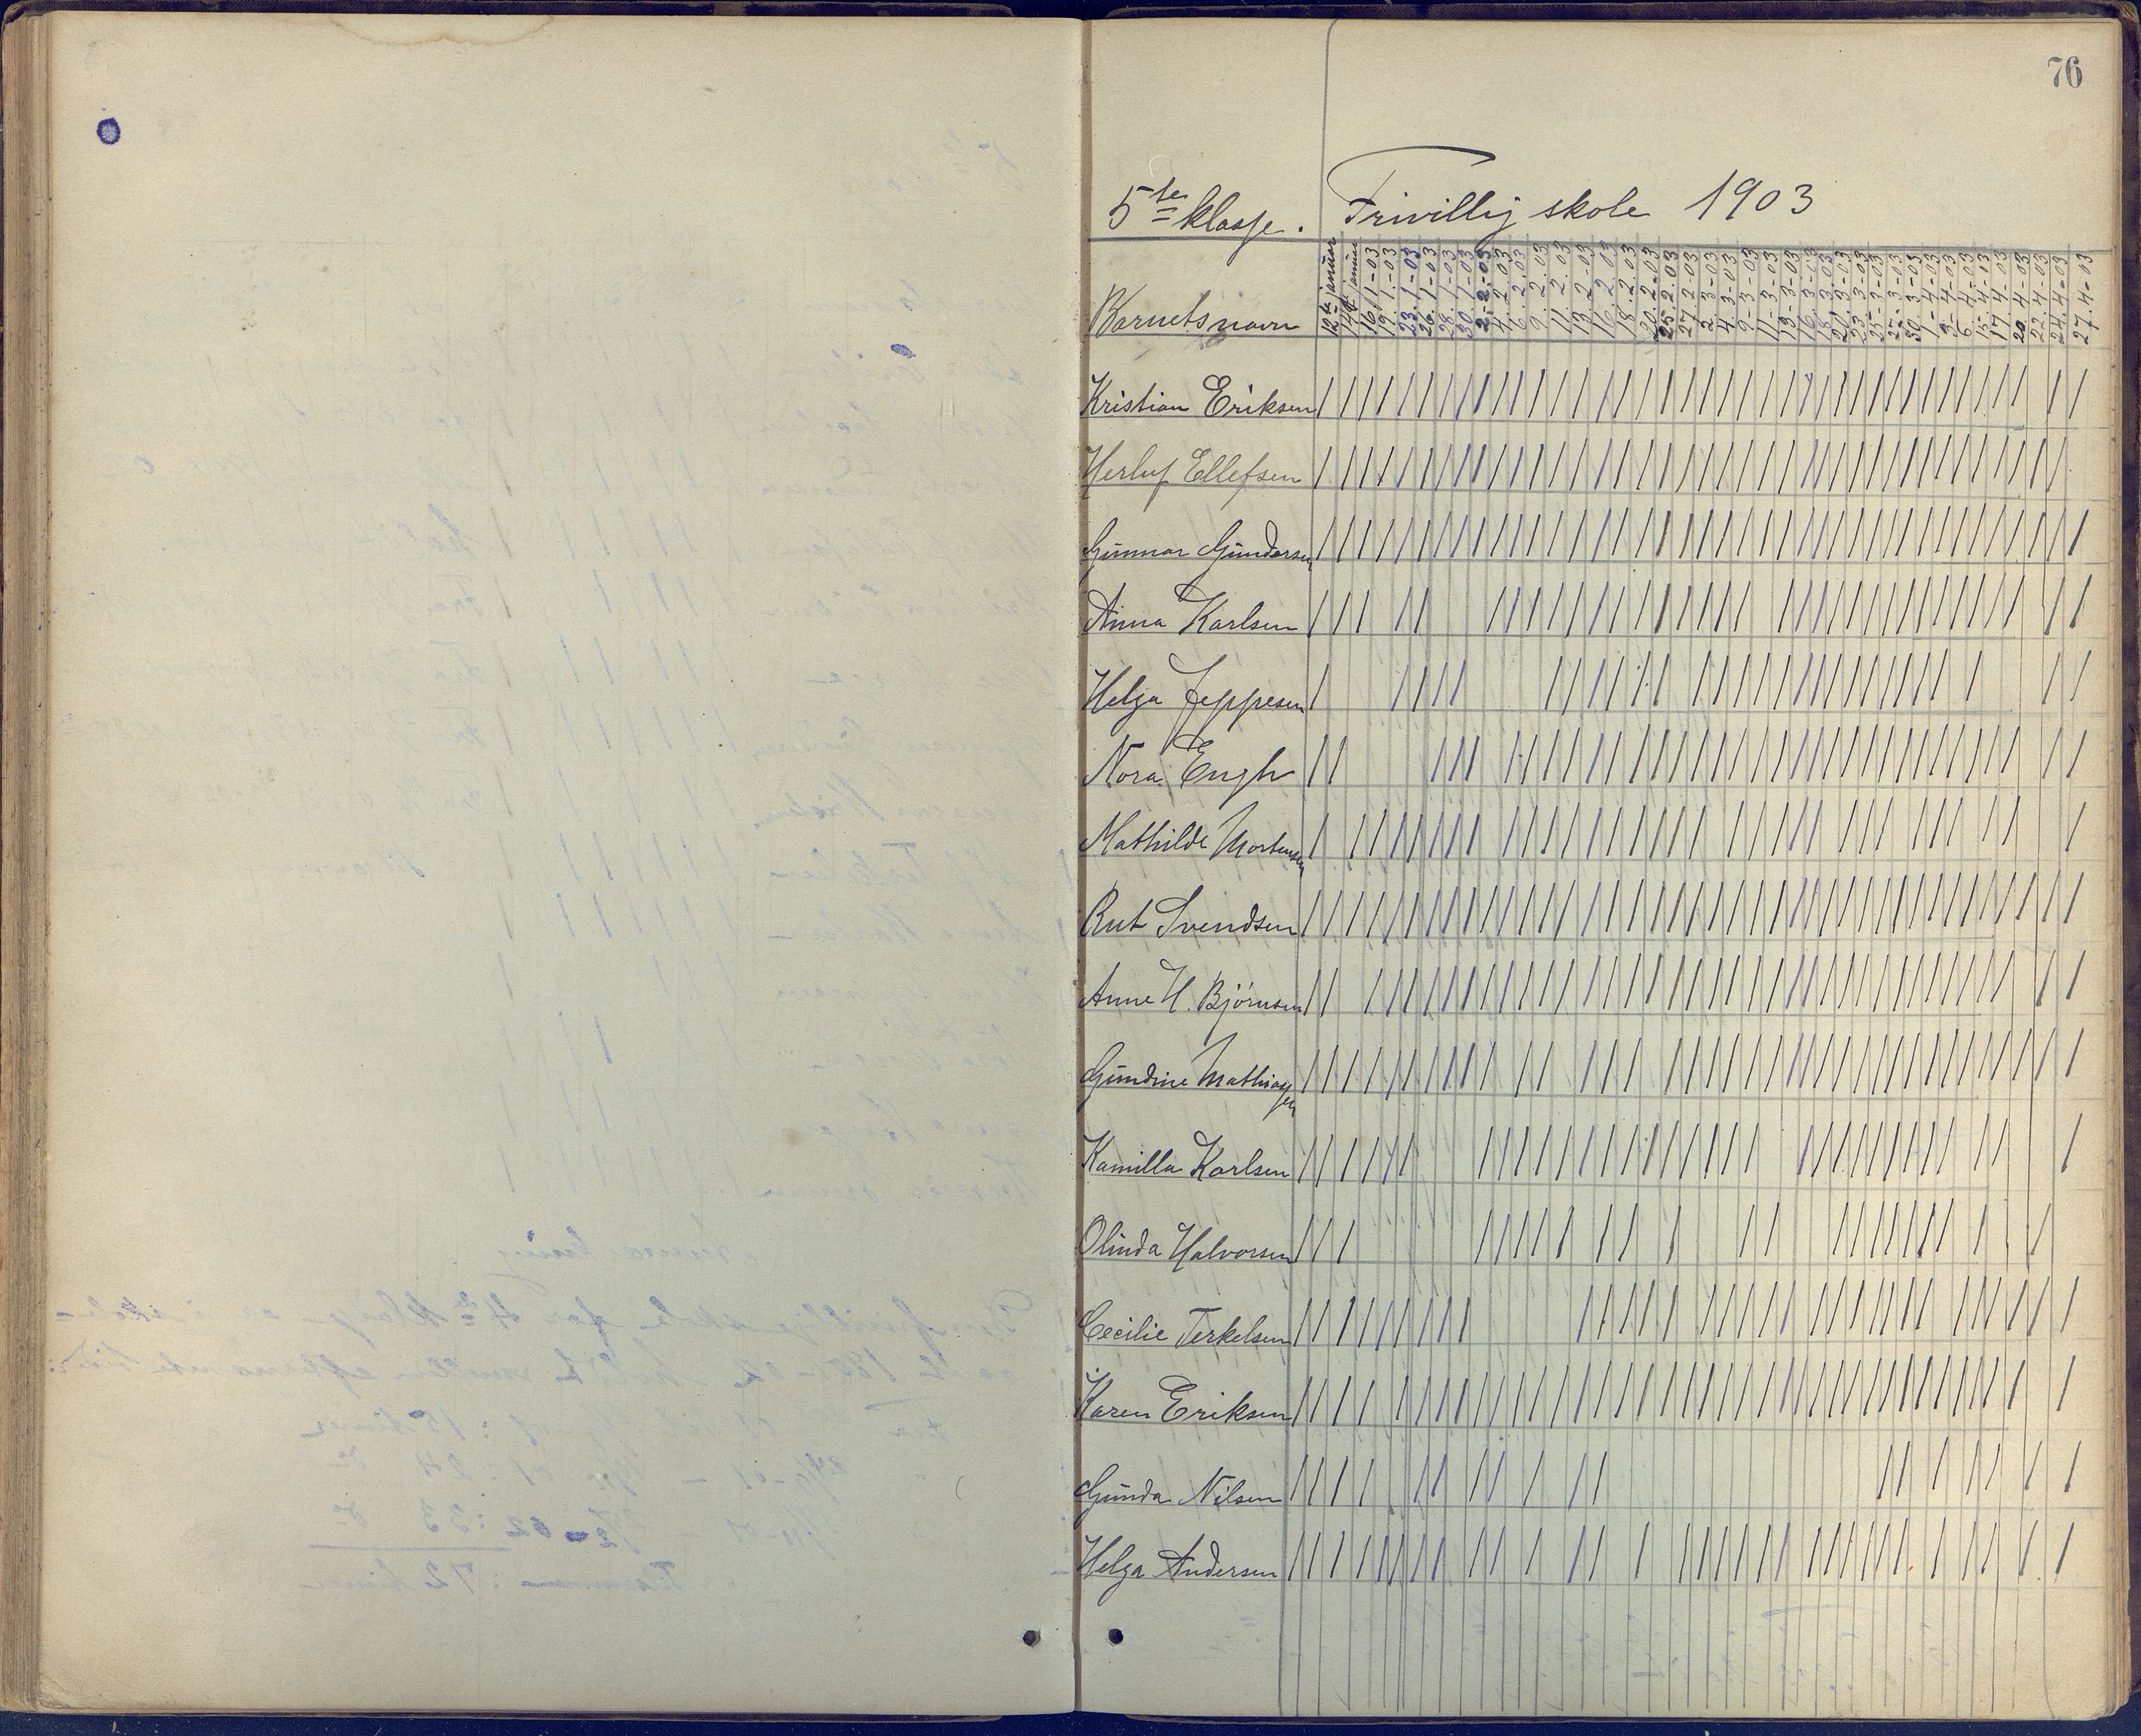 76
5te klasse. Frivillig skole 1903
Barnets navn
12te januar
14de januar
16.1-03
19.1.-03
23.1-03
26.1-03
28.1-03
30.1-03
2.2.-03
4.2.03
6.2.03
9.2.03
11.2.03
13.2.-03
16.2.03
18.2.03
20.2.-03
25.2.03
27.2.03
2.3-03
4.3-03
9-3-03
11-3-03
13-3-03
16.3-03
18.3-03
20.3-03
23.3-03
25-3-03
27.3-03
30.3-03
1-4-03
3-4-03
6-4-03
15-4-03
17.4-03
20.4-03
22.4-03
24.4-03
27.4-03
Kristian Eriksen
Herluf Ellefsen
Gunnar Gundersen
Anna Karlsen
Helga Jeppesen
Nora Engh
Mathilde Mortensen
Rut Svendsen
Anne H. Bjørnsen
Gundine Mathiassen
Kamilla Karlsen
Olinda Halvorsen
Cecilie Terkelsen
Karen Eriksen
Gunda Nilsen
Helga Andersen